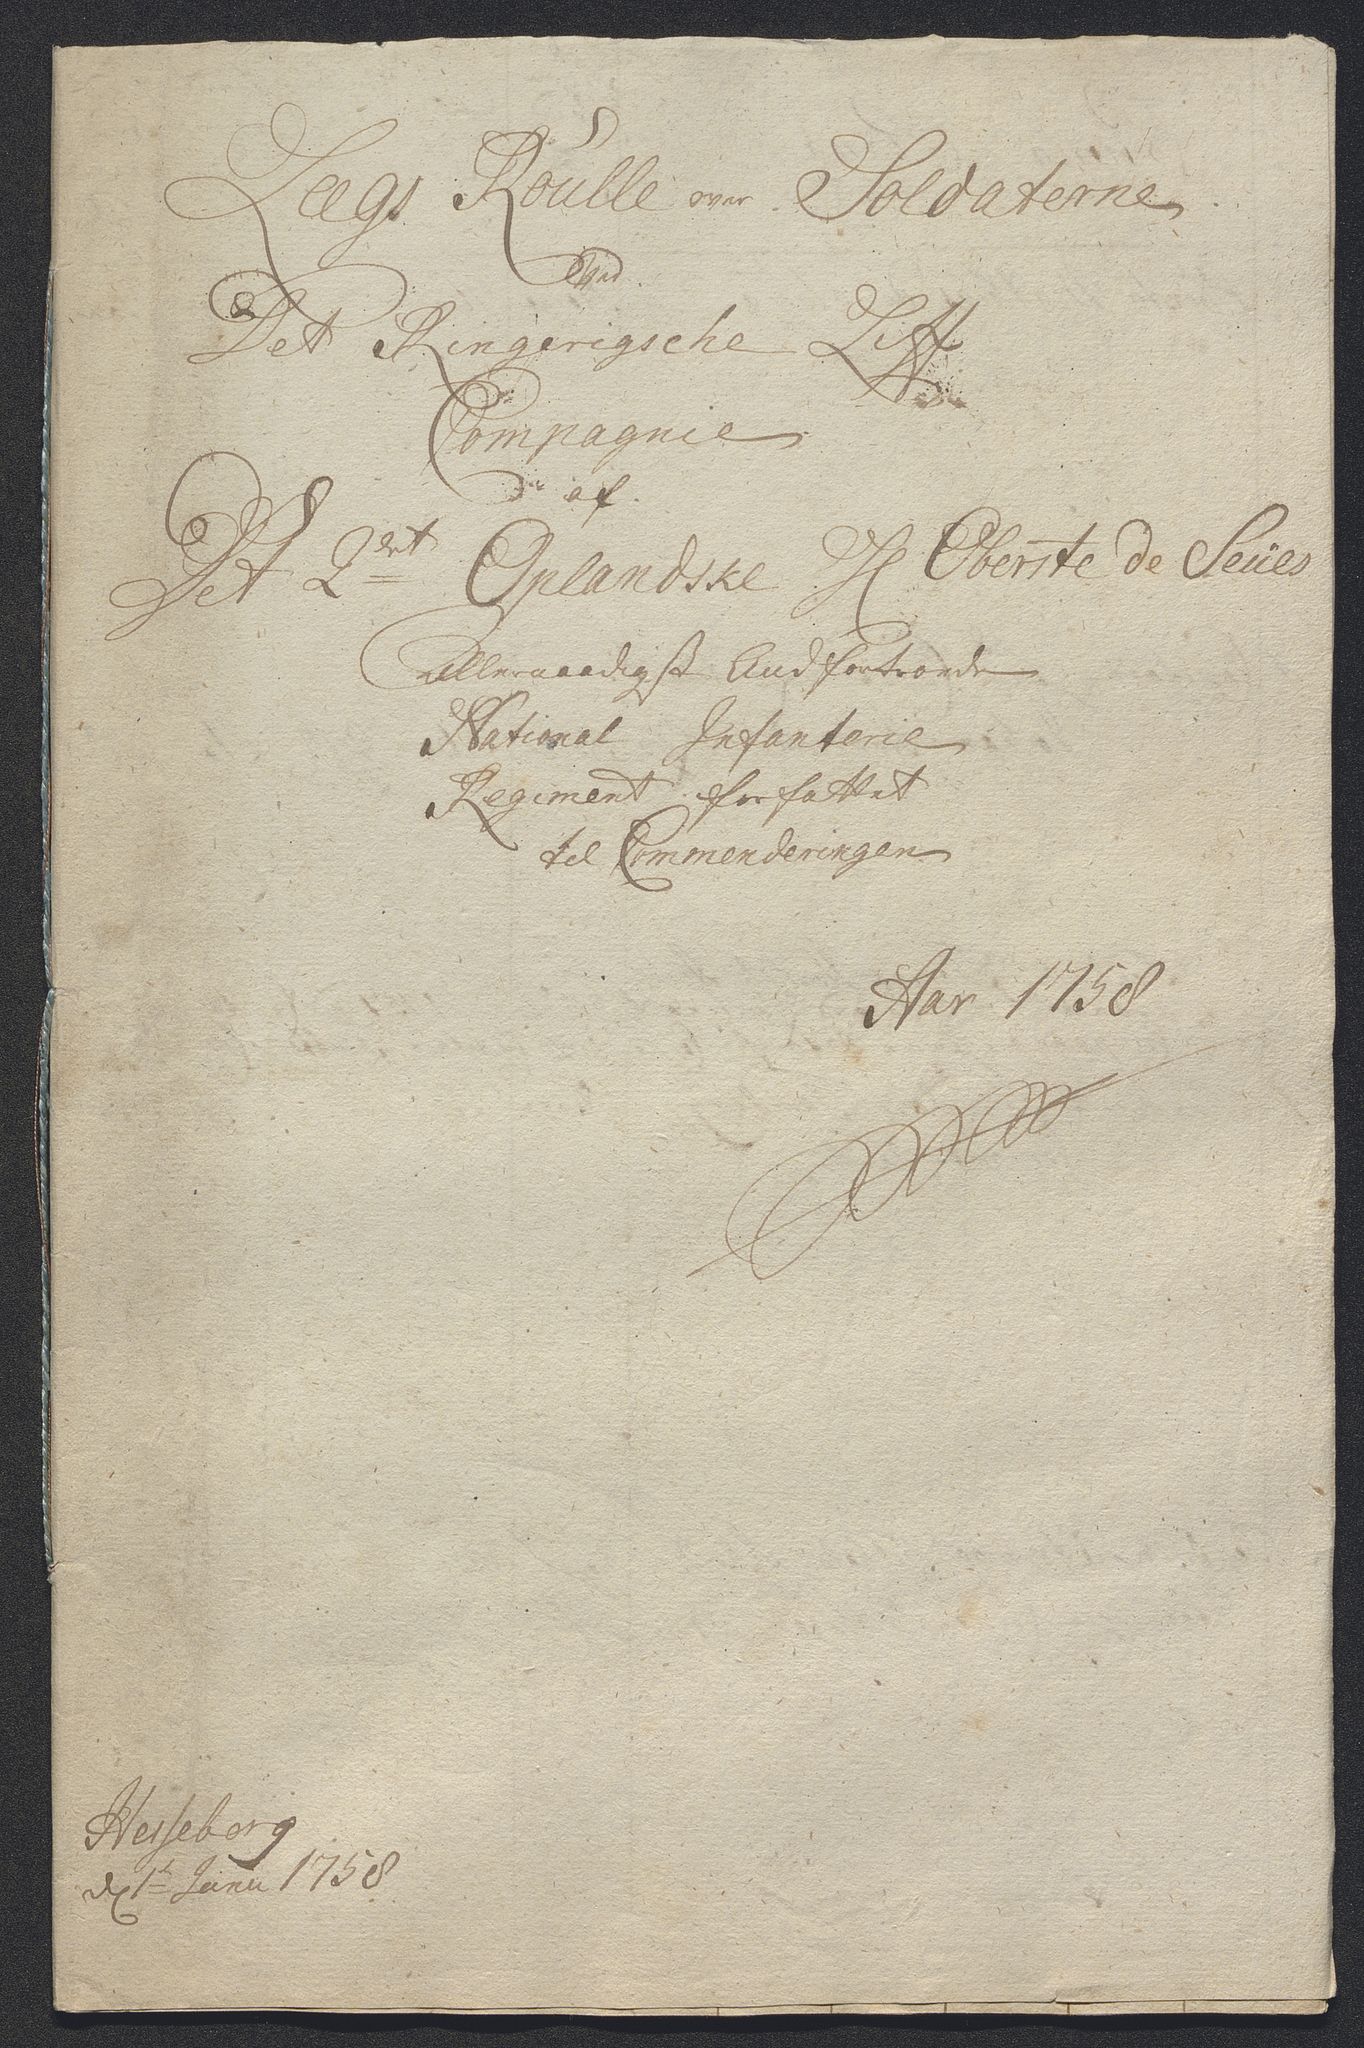 Leegs Roulle over Soldaterne
Ved
Det Ringerigsche Liff
Compagnie
af
Det 2det Oplandske H Oberste de Seües
Allernaadigst Andfortroede
National Infanterie
Regiment forfattet
til Commenderingen
Aar 1758
Hesseberg
d 1t Janu 1758